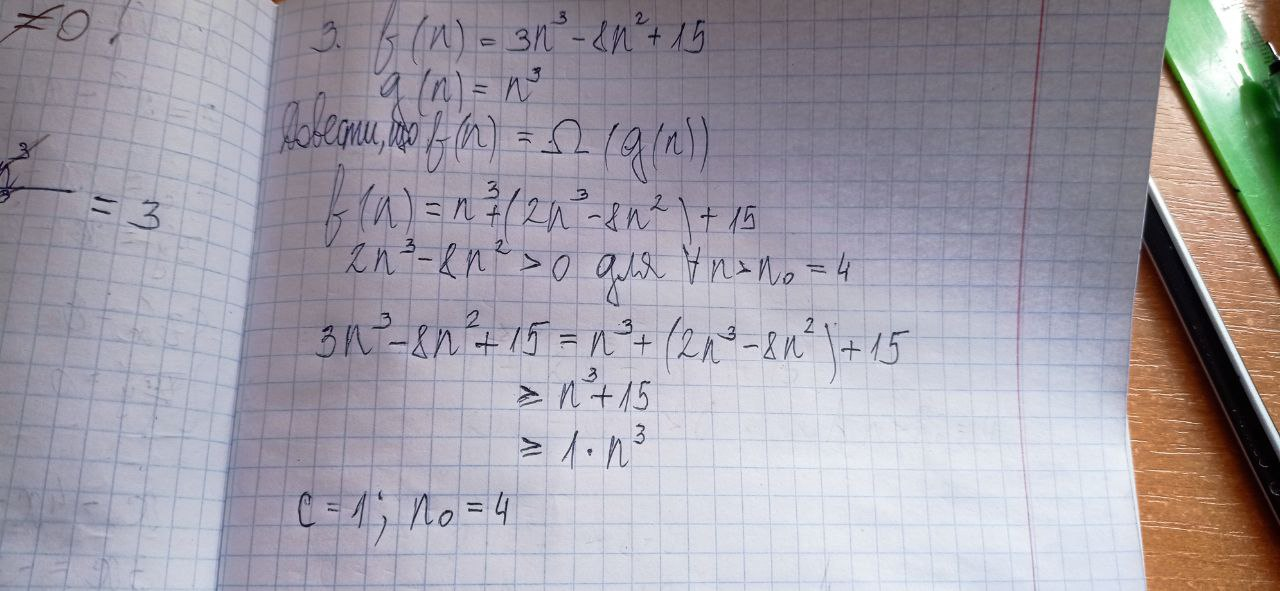 ≠0!
n³
= 3
3. f(n) = 3n³ - 8n² + 15
g(n) = n³
Довести, що f(n) = Ω(g(n))
f(n) = n³ + (2n³ - 8n²) + 15
2n³ - 8n² > 0 для ∀n > n₀ = 4
3n³ - 8n² + 15 = n³ + (2n³ - 8n²) + 15
≥ n³ + 15
≥ 1 · n³
c = 1; n₀ = 4